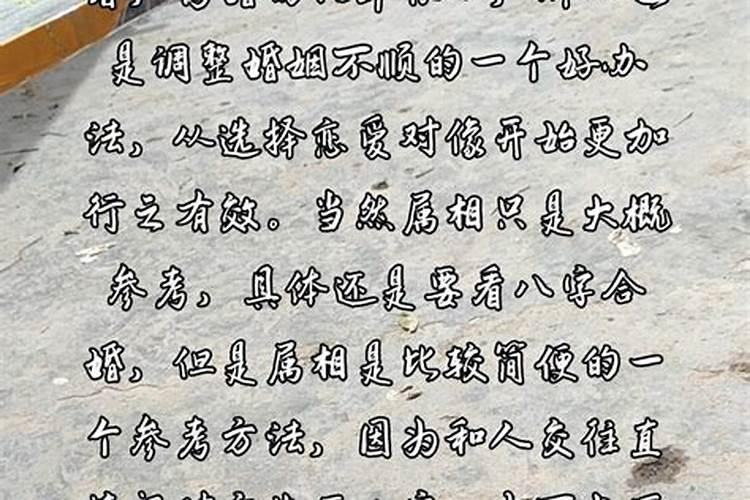 是调整婚姻不顺的一个好办
法，从选择恋爱对像开始更加
行之有效。当然属相只是大概
参考，具体还是要看八字合
婚，但是属相是比较简便的一
个参考方法，因为和人交往直